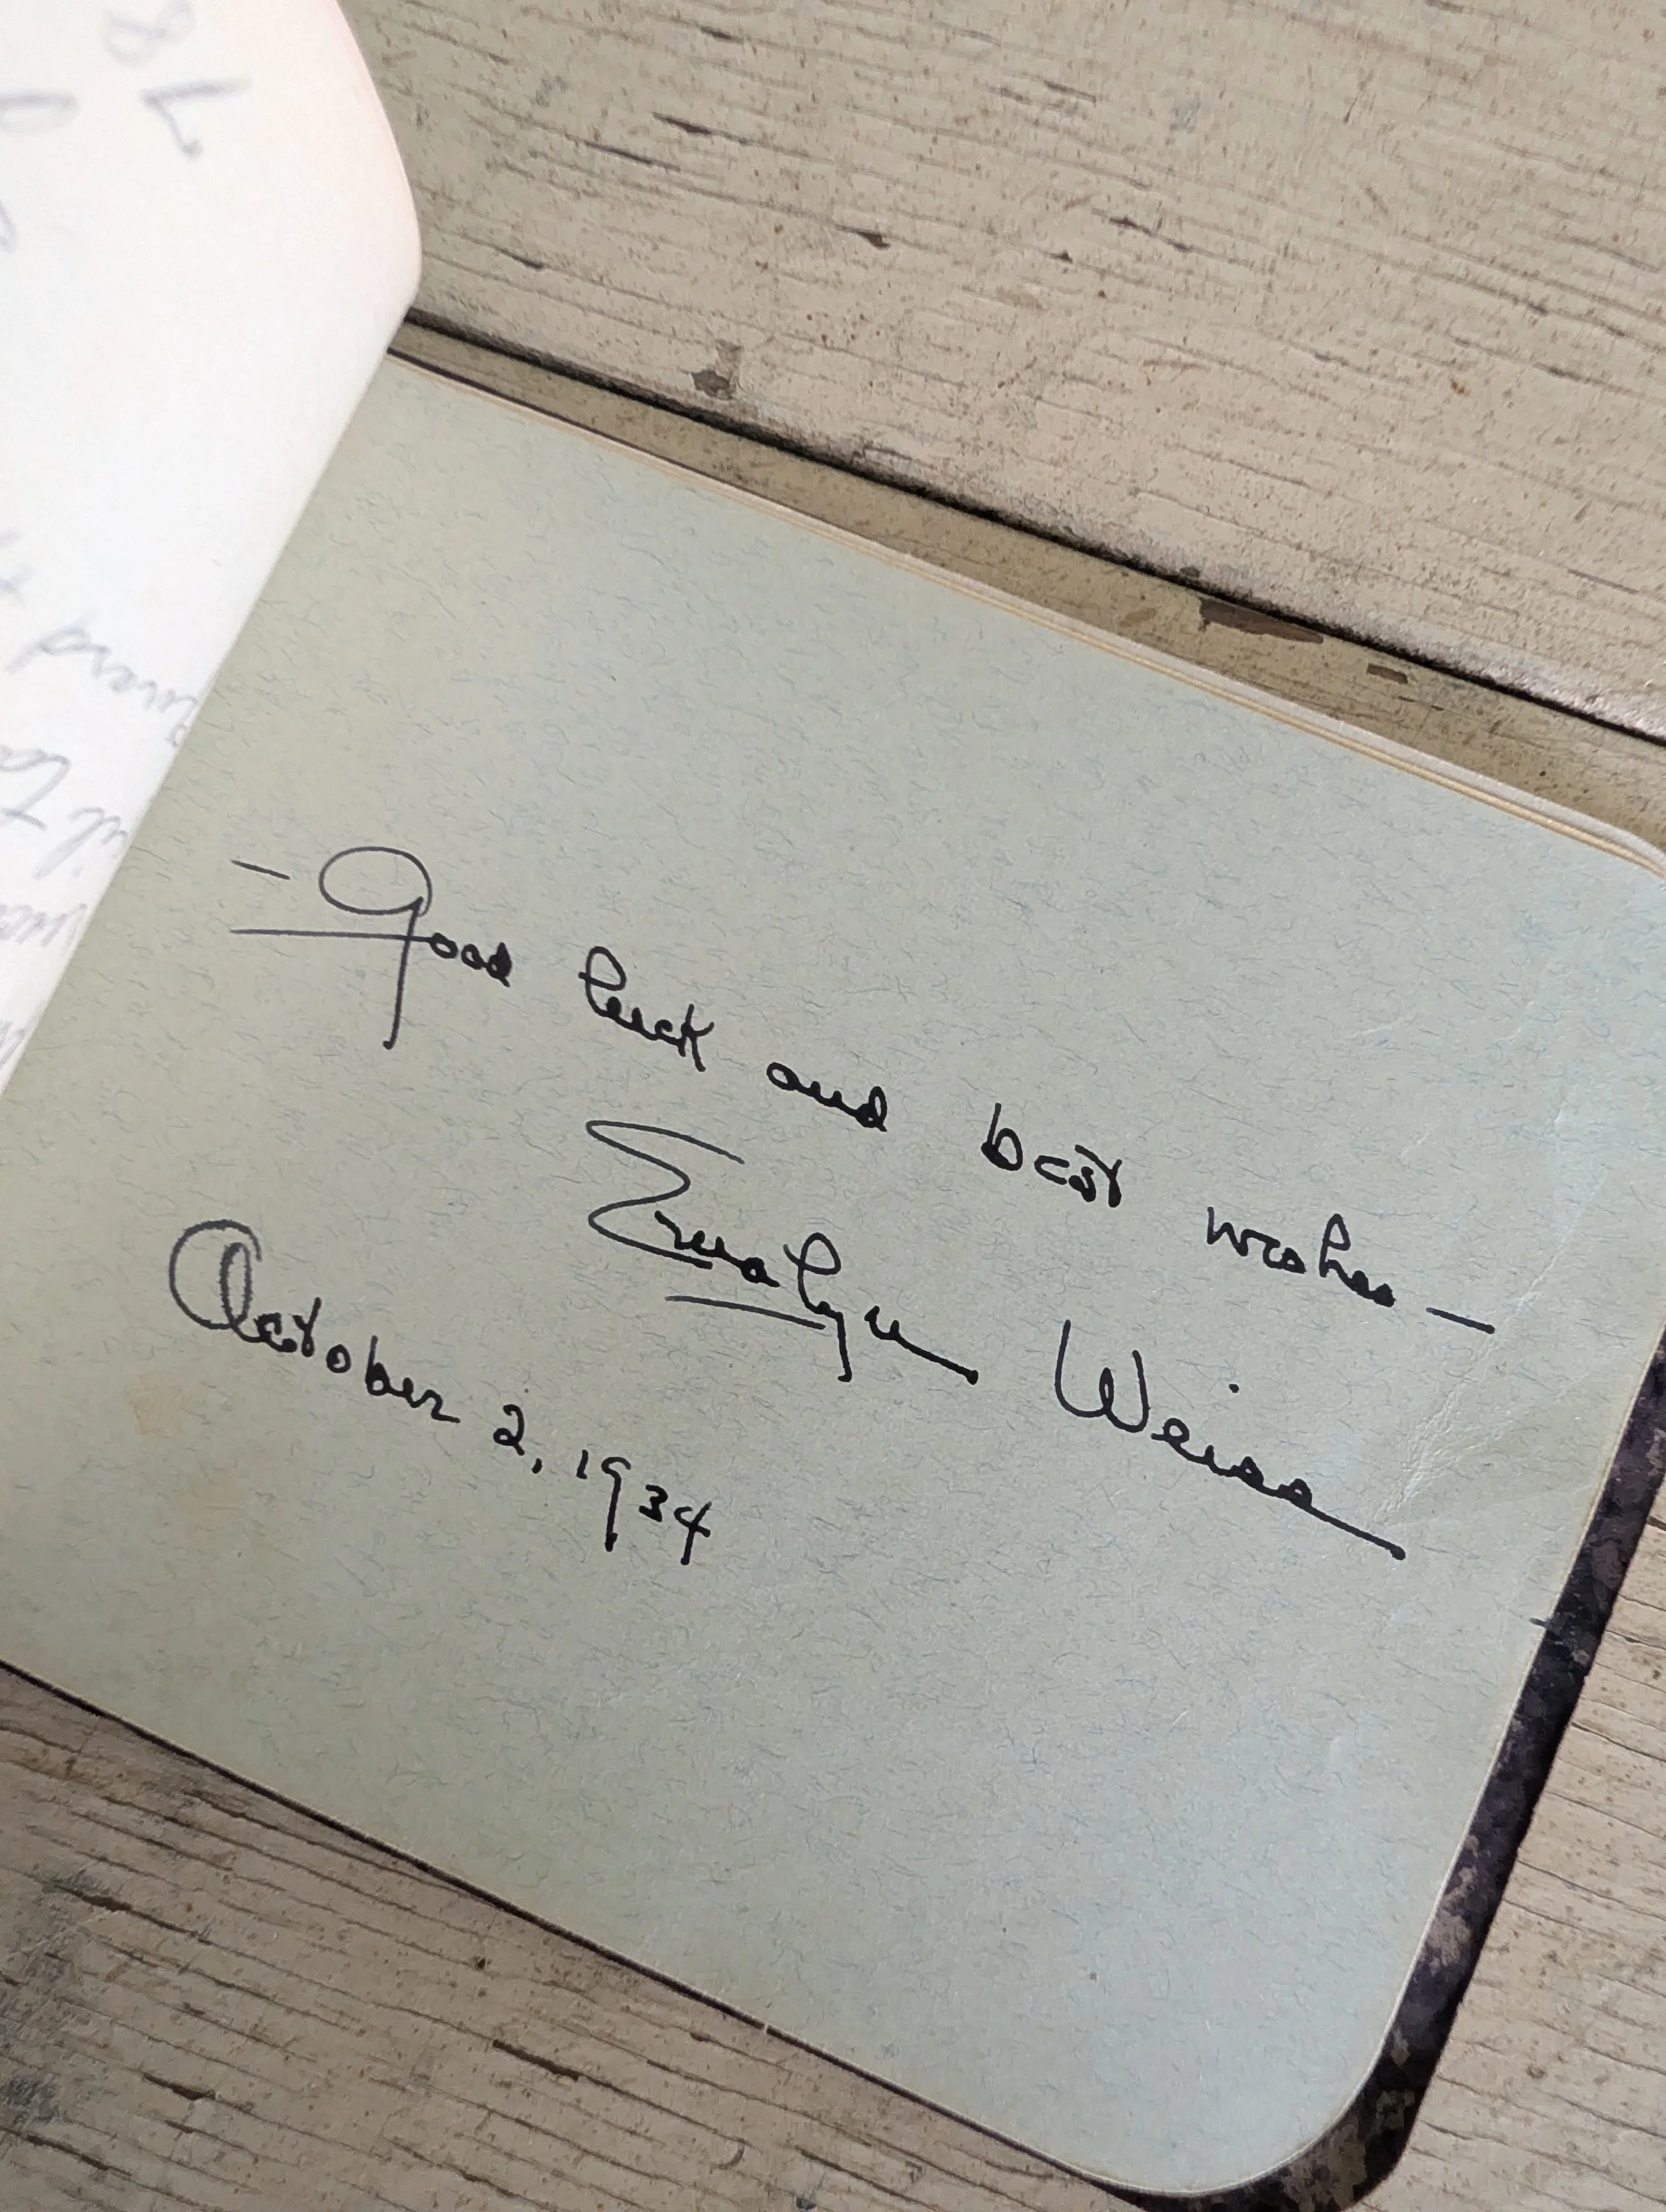 - Good luck and best wishes —
Ermalyn Weiss
October 2, 1934